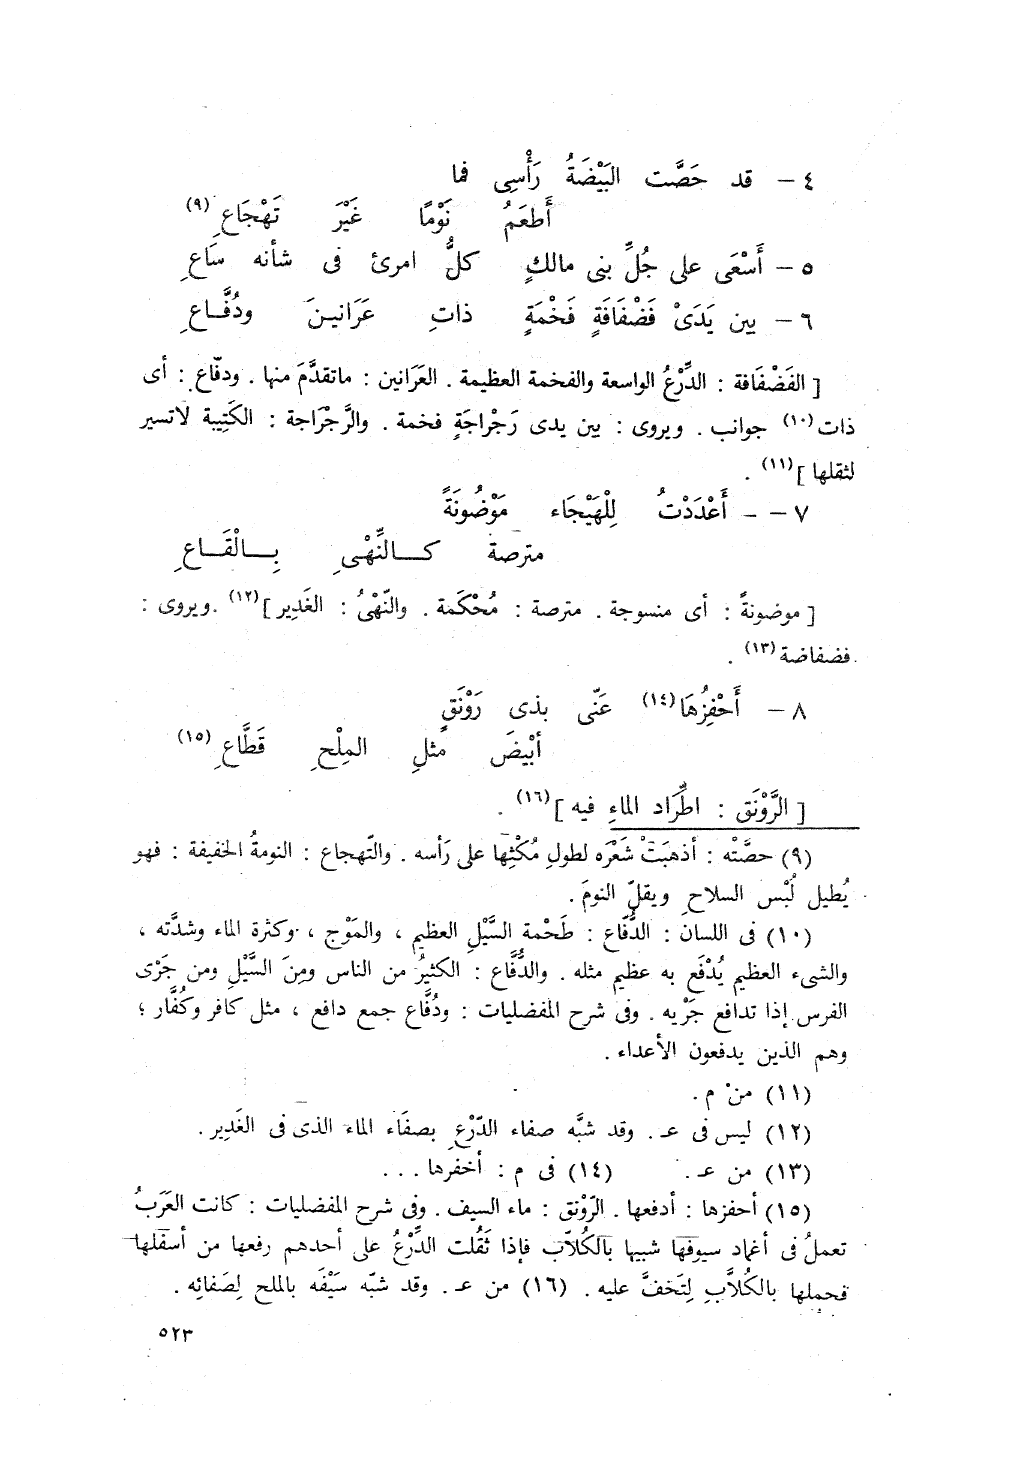 ٤ – قد حَصَّت البَيْضَةُ رَأْسِى فما
أَطعَمُ نَوْمًا غَيْرَ تَهْجَاعِ (٩)
٥ – أَسْعَى على جُلِّ بنى مالكٍ كلُّ امرئ فى شأنه سَاعِ
٦ – بين يَدَىْ فَضْفَافَةٍ فَخْمَةٍ ذاتِ عَرَانينَ ودُفَّاعِ
[ الفَضْفَافة : الدِّرْعُ الواسعة والفخمة العظيمة . العَرَانين : ماتقدَّمَ منها . ودفّاع : أى
ذات (١٠) جوانب . ويروى : بين يدى رَجْراجَةٍ فخمة . والرَّجْرَاجة : الكَتِيبة لاتسير
لثقلها ] (١١) .
٧ – - أَعْدَدْتُ لِلْهَيْجَاء مَوْضُونَةً
مترصة كالنِّهْىِ بِالْقَاعِ
[ موضونةً : أى منسوجة . مترصة : مُحْكَمة . والنّهْىُ : الغَدِير ] (١٢) . ويروى :
فضفاضة (١٣) .
٨ – أَحْفِزُهَا (١٤) عَنّى بذى رَوْنَقٍ
أبْيضَ مثلِ المِلْحِ قَطَّاعِ (١٥)
[ الرَّوْنَق : اطِّرَاد الماءِ فيه ] (١٦) .
(٩) حصَّتْه : أذهبَتْ شَعْرَه لطولِ مُكْثِها على رَأسه . والتّهجاع : النومةُ الخفيفة : فهو
يُطيل لُبْس السلاحِ ويقلّ النومَ .
(١٠) فى اللسان : الدُّفّاع : طَحْمة السَّيْلِ العظيم ، والمَوْج ، وكثرة الماء وشدَّته ،
والشىء العظيم يُدْفَع به عظيم مثله . والدُّفَّاع : الكثيرُ من الناس ومِنَ السَّيْلِ ومن جَرْى
الفرس إذا تدافع جَرْيه . وفى شرح المفضليات : ودُفَّاع جمع دافع ، مثل كافر وكُفَّار ؛
وهم الذين يدفعون الأعداء .
(١١) من م .
(١٢) ليس فى عـ . وقد شبَّه صفاء الدّرْعِ بصفَاء الماء الذى فى الغَدِير .
(١٣) من عـ . (١٤) فى م : أخفرها . . .
(١٥) أحفزها : أدفعها . الرّوْنق : ماء السيف . وفى شرح المفضليات : كانت العَرَبُ
تعملُ فى أغماد سيوفها شبيها بالكُلاّب فإذا ثَقُلت الدِّرْعُ على أحدهم رفعها من أسفلها
فحملها بالكُلاَّبِ لِتَخفَّ عليه . (١٦) من عـ . وقد شبّه سَيْفَه بالملح لِصَفائِه .
٥٢٣